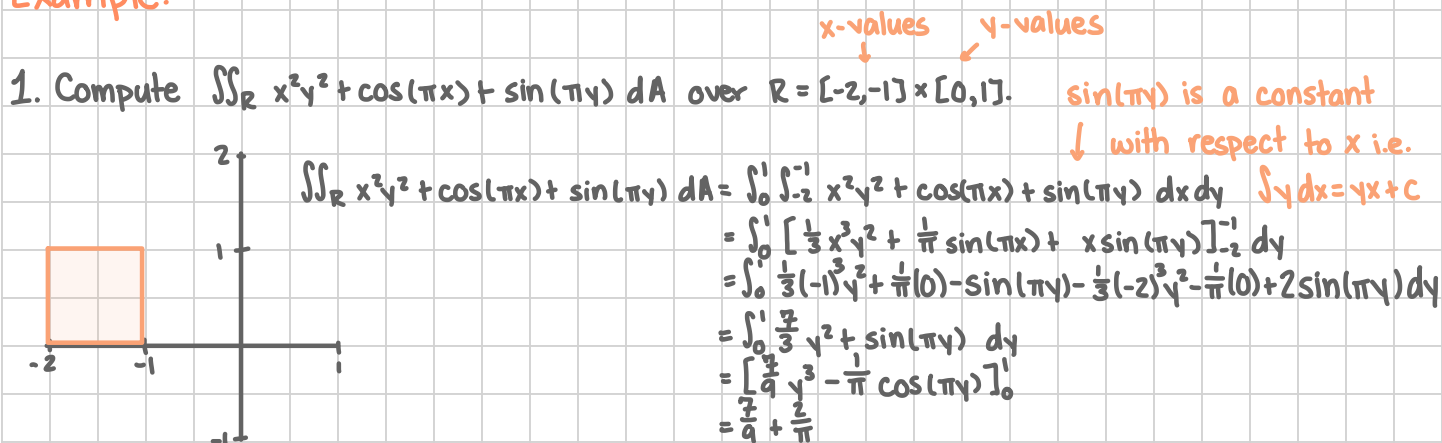 Example:
x-values y-values
1. Compute ∬_R x²y² + cos(πx) + sin(πy) dA over R = [-2,-1] × [0,1].
sin(πy) is a constant
↓ with respect to x i.e.
∫y dx = yx + C
2
1
-2 -1 1
-1
∬_R x²y² + cos(πx) + sin(πy) dA = ∫₀¹ ∫₋₂⁻¹ x²y² + cos(πx) + sin(πy) dx dy
= ∫₀¹ [⅓x³y² + 1/π sin(πx) + x sin(πy)]₋₂⁻¹ dy
= ∫₀¹ ⅓(-1)³y² + 1/π(0) - sin(πy) - ⅓(-2)³y² - 1/π(0) + 2 sin(πy) dy
= ∫₀¹ 7/3 y² + sin(πy) dy
= [7/9 y³ - 1/π cos(πy)]₀¹
= 7/9 + 2/π